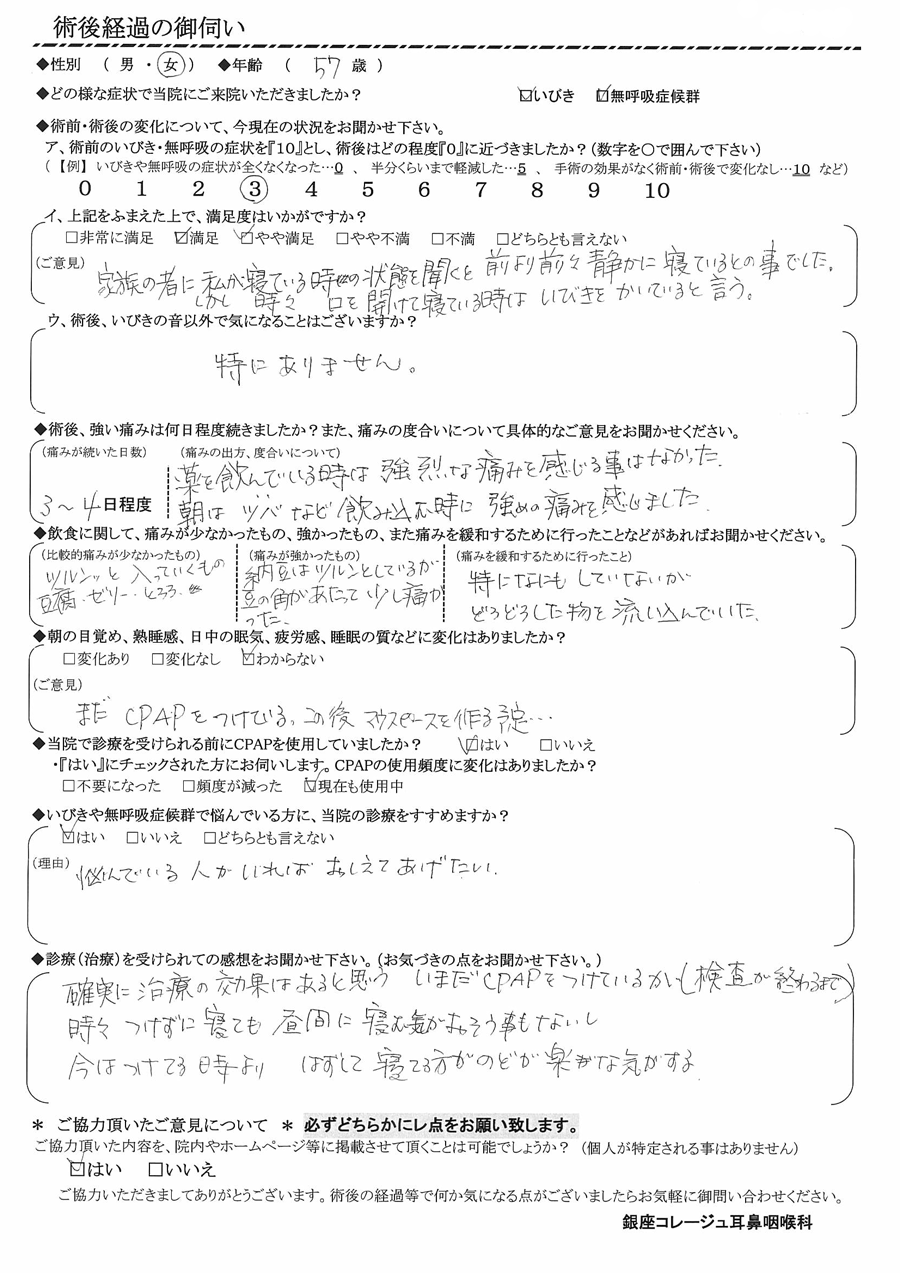 術後経過の御伺い
◆性別 ( 男 ・ 女 ) ◆年齢 ( 57 歳 )
◆どの様な症状で当院にご来院いただきましたか? ☑いびき ☑無呼吸症候群
◆術前・術後の変化について、今現在の状況をお聞かせ下さい。
ア、術前のいびき・無呼吸の症状を『10』とし、術後はどの程度『0』に近づきましたか?(数字を〇で囲んで下さい)
(【例】 いびきや無呼吸の症状が全くなくなった…0 、 半分くらいまで軽減した…5 、 手術の効果がなく術前・術後で変化なし…10 など)
0 1 2 3 4 5 6 7 8 9 10
イ、上記をふまえた上で、満足度はいかがですか?
□非常に満足 ☑満足 ☑やや満足 □やや不満 □不満 □どちらとも言えない
(ご意見)
家族の者に私が寝ている時の状態を聞くと前より前々静かに寝ているとの事でした。
しかし 時々 口を開けて寝ている時は いびきを かいていると言う。
ウ、術後、いびきの音以外で気になることはございますか?
特にありません。
◆術後、強い痛みは何日程度続きましたか?また、痛みの度合いについて具体的なご意見をお聞かせください。
(痛みが続いた日数) (痛みの出方、度合いについて)
薬を飲んでいる時は 強烈な痛みを感じる事はなかった.
3～4日程度 朝は ツバなど飲み込む時に 強めの痛みを感じました
◆飲食に関して、痛みが少なかったもの、強かったもの、また痛みを緩和するために行ったことなどがあればお聞かせください。
(比較的痛みが少なかったもの) (痛みが強かったもの) (痛みを緩和するために行ったこと)
ツルンッと 入っていくもの
豆腐・ゼリー・とろろ
納豆はツルンとしているが
豆の角があたって少し痛か
った.
特になにも していないが
どろどろした物を 流し込んでいた.
◆朝の目覚め、熟睡感、日中の眠気、疲労感、睡眠の質などに変化はありましたか?
□変化あり □変化なし ☑わからない
(ご意見)
まだ CPAPをつけている。この後 マウスピースを作る予定…
◆当院で診療を受けられる前にCPAPを使用していましたか? ☑はい □いいえ
・『はい』にチェックされた方にお伺いします。CPAPの使用頻度に変化はありましたか?
□不要になった □頻度が減った ☑現在も使用中
◆いびきや無呼吸症候群で悩んでいる方に、当院の診療をすすめますか?
☑はい □いいえ □どちらとも言えない
(理由) 悩んでいる 人が いれば おしえて あげたい.
◆診療(治療)を受けられての感想をお聞かせ下さい。(お気づきの点をお聞かせ下さい。)
確実に 治療の効果はあると思う いまだCPAPをつけているが(検査が終わるまで)
時々 つけずに寝ても 昼間に 寝む気がおそう事もないし
今はつけてる時より はずして 寝てる方がのどが楽な気がする.
＊ ご協力頂いたご意見について ＊ 必ずどちらかにレ点をお願い致します。
ご協力頂いた内容を、院内やホームページ等に掲載させて頂くことは可能でしょうか? (個人が特定される事はありません)
☑はい □いいえ
ご協力いただきましてありがとうございます。術後の経過等で何か気になる点がございましたらお気軽に御問い合わせください。
銀座コレージュ耳鼻咽喉科